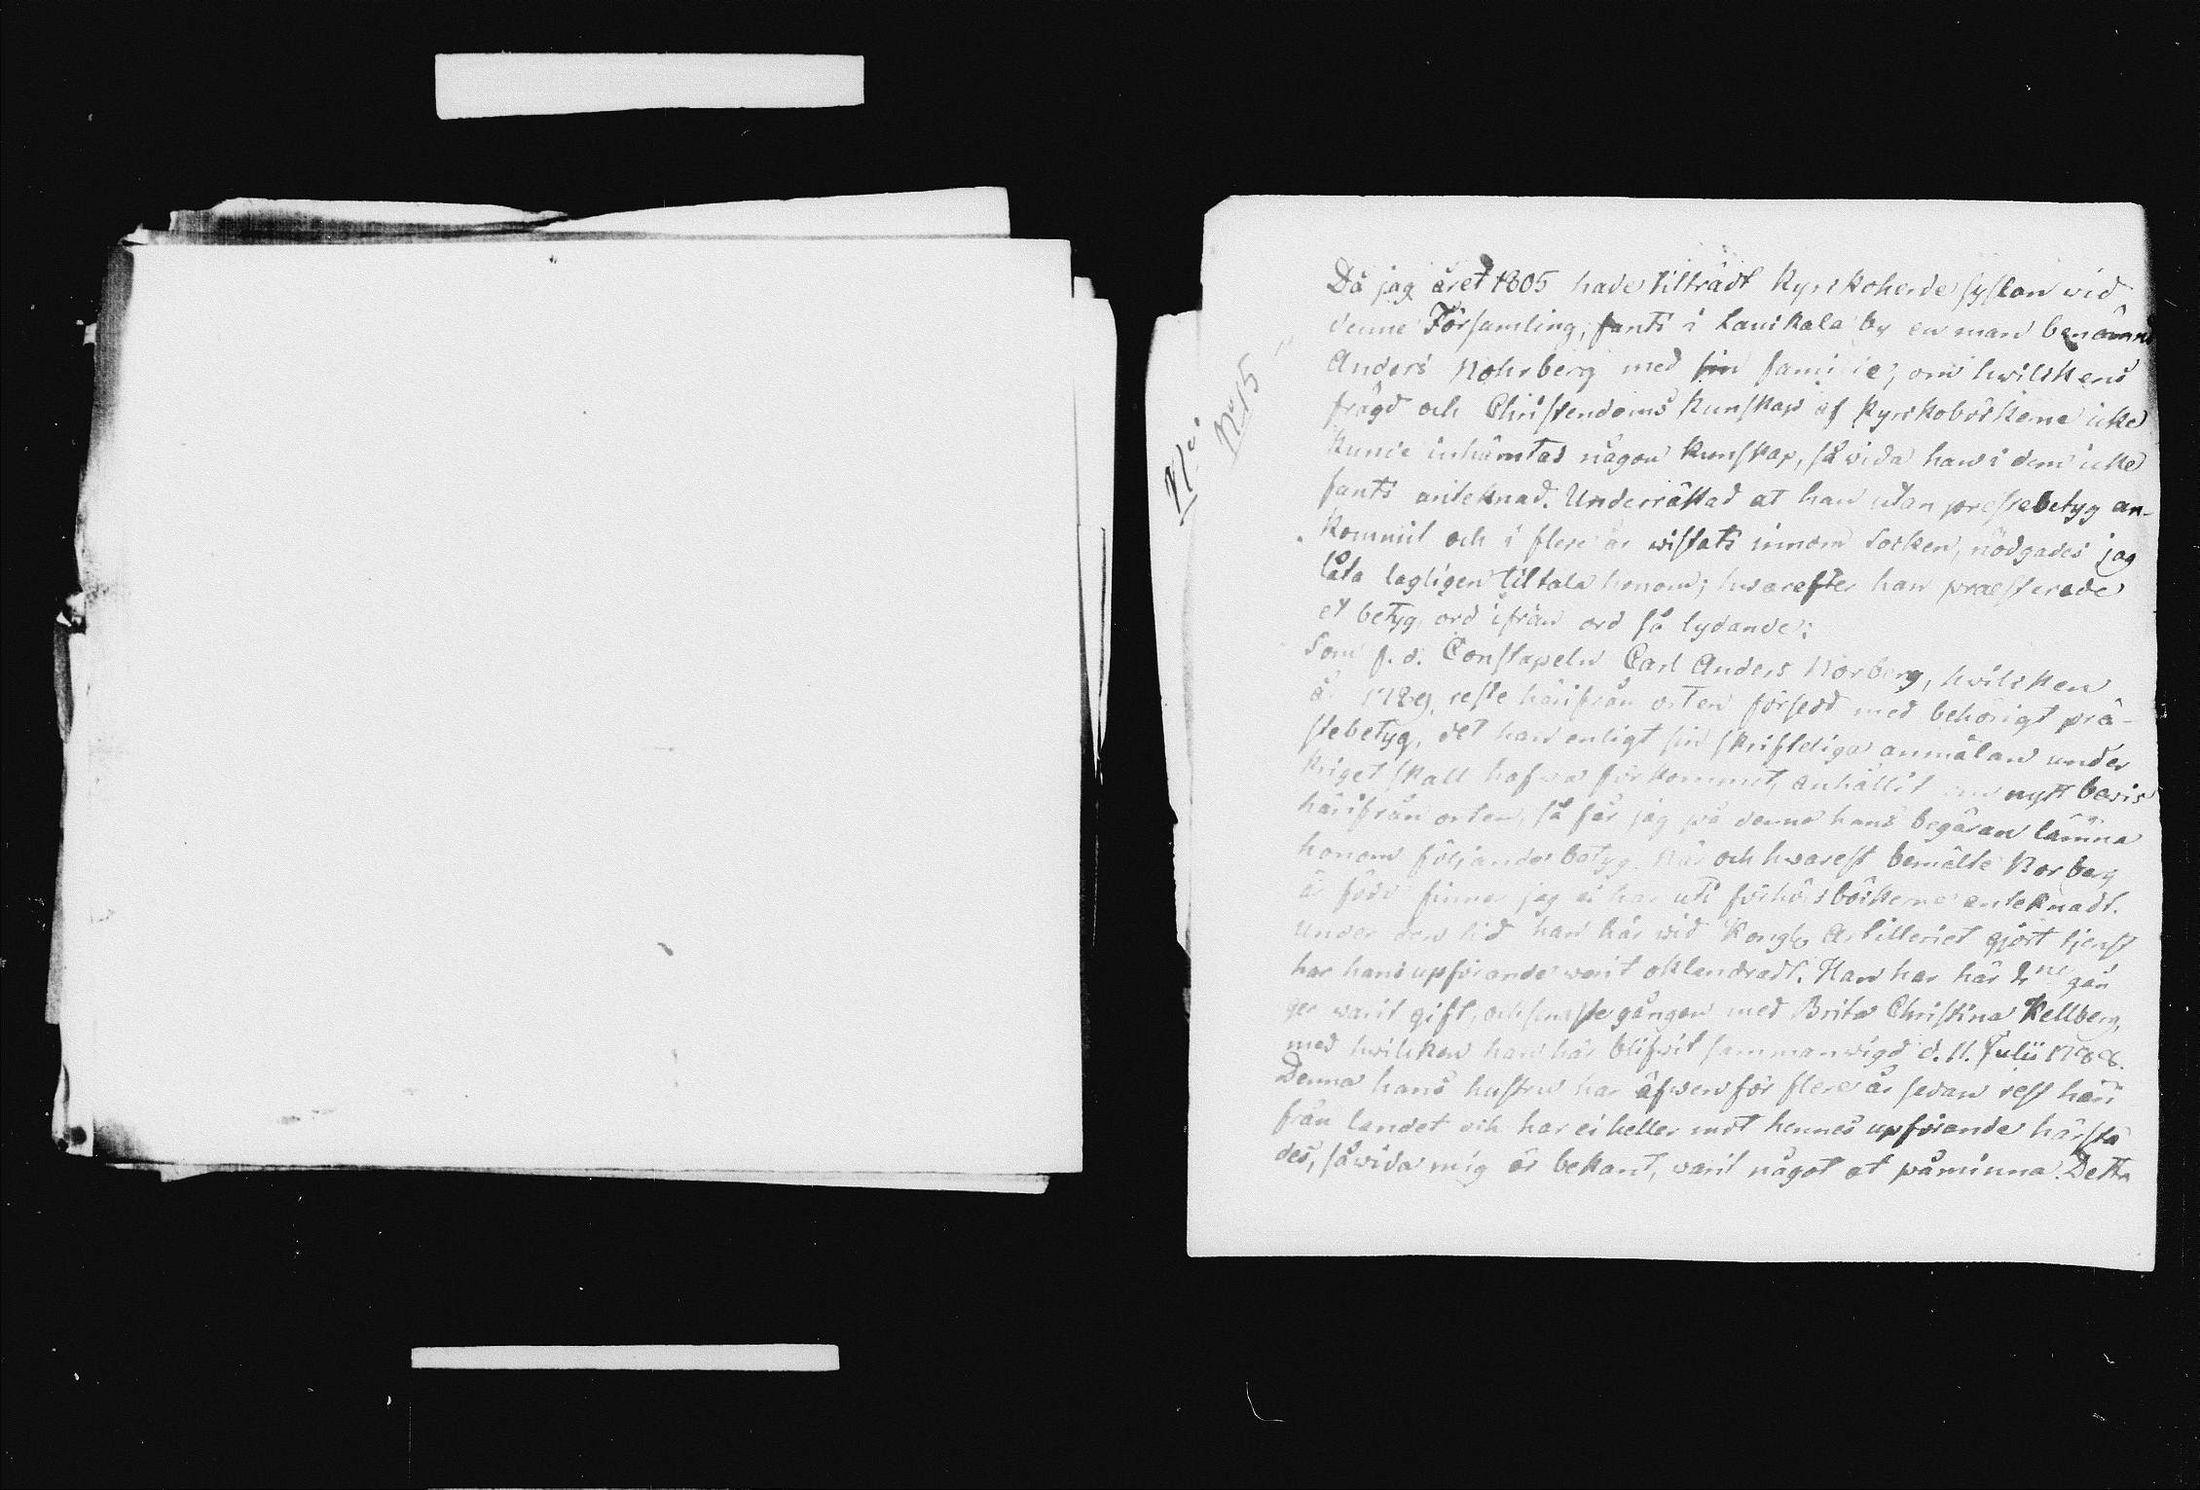 Då jag året 1805 hade tilträdt Kyrkoherde syslan wid
denne Församling, fants i Lauikala by en man benämnd
Anders Nohrberg med sin familie; om hwilkens
frägd och Christendoms kunskap af Kyrkoböckerne icke
kunde inhämtas någon kunskap, så wida han i dem icke
fants anteknad. Underrättad at han utan prestebetyg an-
kommit och i flere år wistats innom Socken, nödgades jag
låta lagligen tiltala honom; hwarefter han præsterade
et betyg, ord ifrån ord så lydande:
Som f. d. Constapeln Carl Anders Norberg, hwilken
år 1789, reste härifrån orten försedd med behörigt prä-
stebetyg, det han enligt sin skriftliga anmälan under
kriget skall hafwa förkommit, anhållit om nytt bevis
härifrån orten, så får jag på denna hans begäran lämna
honom följande betyg. När och hwarest bemälte Norberg
är född finner jag ei här uti förhörsböckerne anteknadt.
Under den tid han här wid Kongl. Artilleriet gjort tjenst
har hans upförande warit oklandradt. Han har här 2ne gån
ger warit gift, och senaste gången med Brita Christina Kellberg,
med hwilken han här blifwit sammanwigd d. 11. Julii 1788.
Denna hans hustru har äfwen för flere år sedan rest häri
från landet och har ei heller mot hennes upförande härstä
des, så wida mig är bekant, warit något at påminna. Detta
No 15